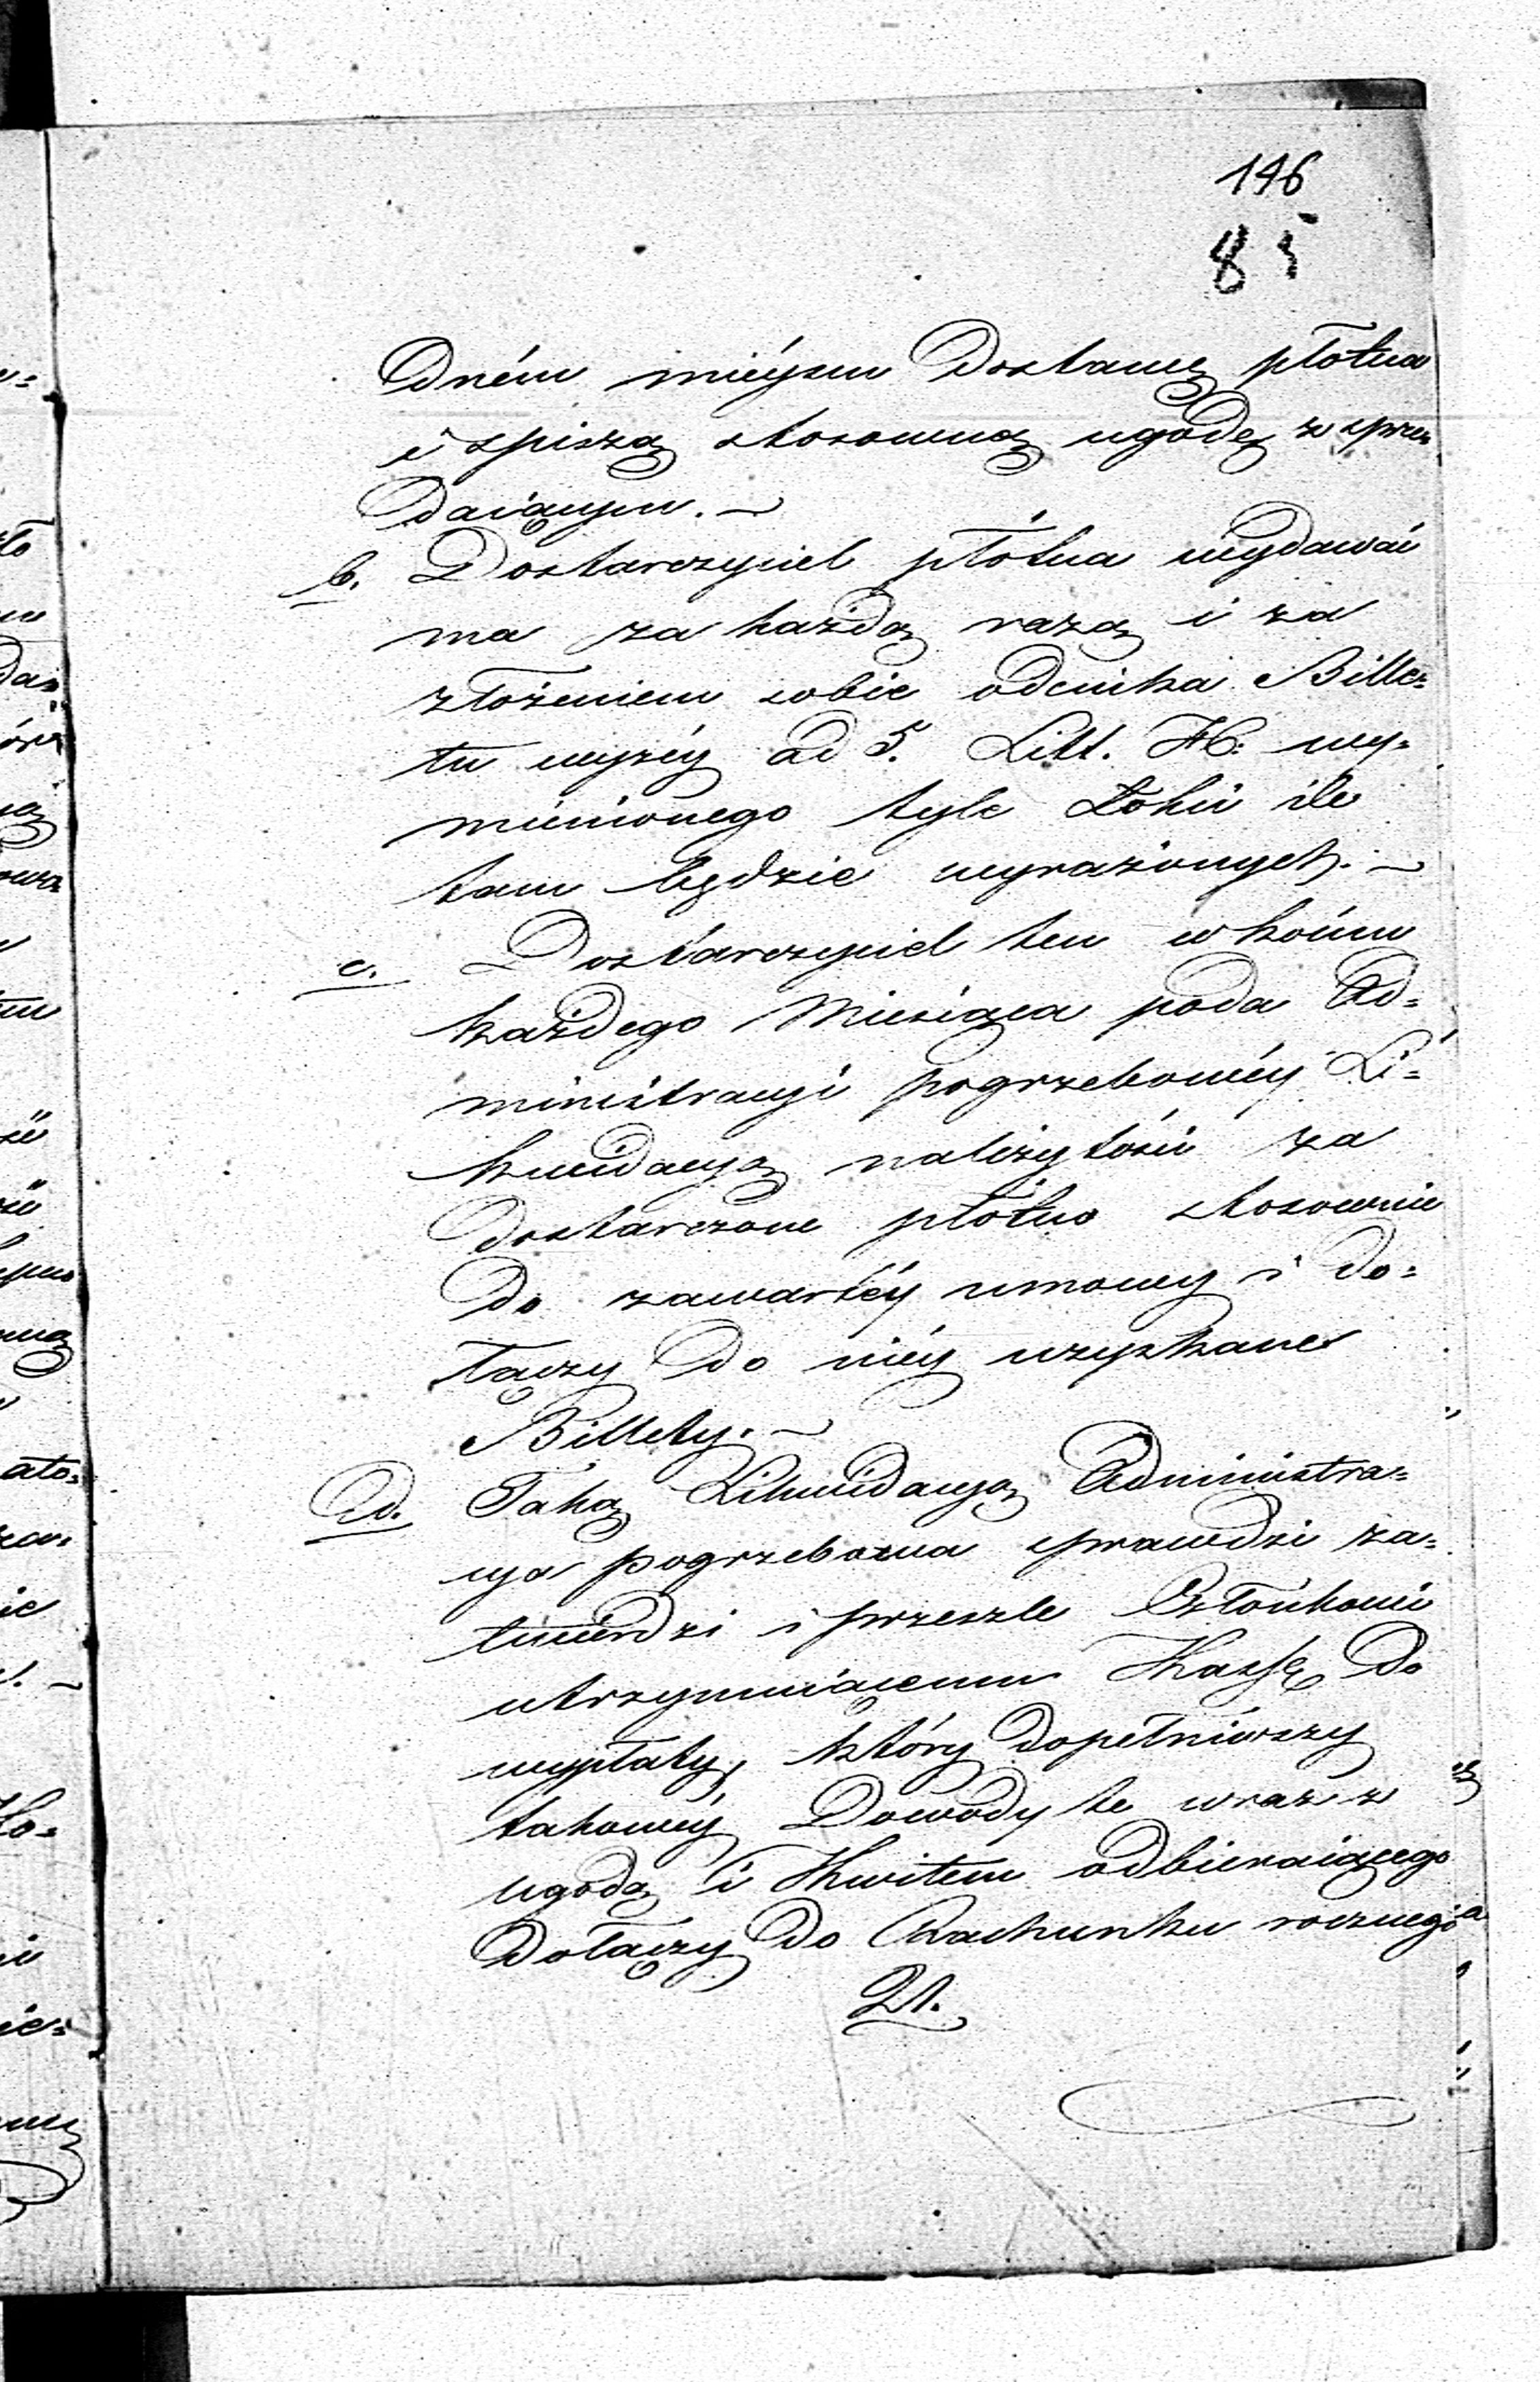 146
85
dném miéyscu dostawę płótna
i spiszą stosowną ugodę z sprze-
daiącym. ~
b. Dostarczyciel płótna wydawać
ma za każdą razą i za
złożeniem sobie odcinka Bille=
tu wyżéy ad 5. Litt. H: wy=
mienionego tyle Łokci ile
tam będzie wyrażonych. ~
c. Dostarczyciel ten w końcu
każdego Miesiąca poda Ad=
ministracyi pogrzebowéy Li=
kwidacyą należytości za
dostarczone płótno stosownie
do zawartéy umowy i do=
łączy do niéy uzyskane
Billety. ~
d. Taką Likwidacyą Administra=
cya pogrzebowa sprawdzi za=
twierdzi i prześzle Członkowi
utrzymuiącemu Kassę do
wypłaty, który dopełniwszy
takowéy Dowody te wraz z
ugodą i Kwitem odbieraiącego
dołączy do Rachunku rocznego
21.